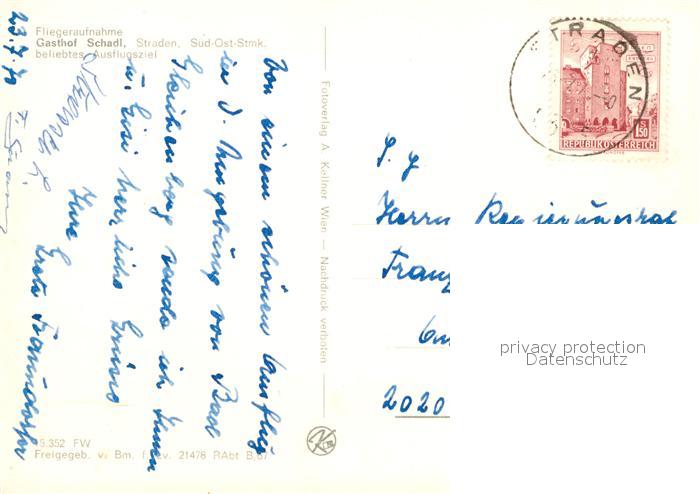 Fliegeraufnahme
Gasthof Schadl, Straden, Süd-Ost-Stmk.
beliebtes Ausflugsziel
23.7.70
Von einem schönen Ausflug
in d. Umgebung von Bad
Gleichenberg sende ich Ihnen
u. Lisi herzliche Grüsse
Ihre
Fotoverlag A. Kellner Wien — Nachdruck verboten
5.352 FW
Freigegeb. v. Bm. f. Lv. 21478 RAbt B,67
STRADEN
1.50
REPUBLIK ÖSTERREICH
Herrn Regierungsrat
Franz
2020
privacy protection
Datenschutz